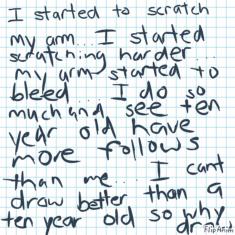 I started to scratch
my arm... I started
scratching harder...
my arm started to
bleed.... I do so
much and see ten
year old have
more follows
than me... I cant
draw better than a
ten year old so why
draw
FlipAnim